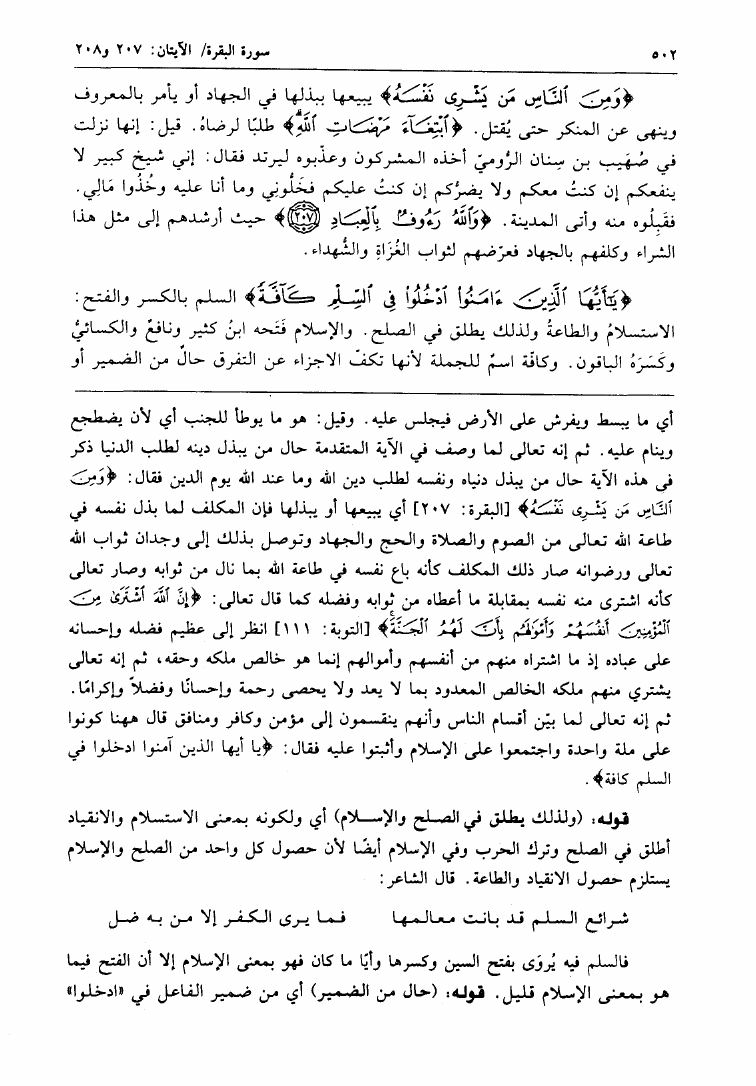 ٥٠٢ سورة البقرة/ الآيتان: ٢٠٧ و٢٠٨
﴿وَمِنَ ٱلنَّاسِ مَن يَشْرِى نَفْسَهُ﴾ يبيعها ببذلها في الجهاد أو يأمر بالمعروف
وينهى عن المنكر حتى يُقتل. ﴿ٱبْتِغَآءَ مَرْضَاتِ ٱللَّهِ﴾ طلبًا لرضاهُ. قيل: إنها نزلت
في صُهَيب بن سِنان الرُوميّ أخذه المشركون وعذّبوه ليرتد فقال: إني شيخ كبير لا
ينفعكم إن كنتُ معكم ولا يضرُّكم إن كنتُ عليكم فخَلُّوني وما أنا عليه وخُذُوا مَالِي.
فقَبِلُوه منه وأتى المدينة. ﴿وَٱللَّهُ رَءُوفٌ بِٱلْعِبَادِ ٢٠٧﴾ حيث أرشدهم إلى مثل هذا
الشراء وكلفهم بالجهاد فعرّضهم لثواب الغُزَاة والشُهداء.
﴿يَٰٓأَيُّهَا ٱلَّذِينَ ءَامَنُوا۟ ٱدْخُلُوا۟ فِى ٱلسِّلْمِ كَآفَّةً﴾ السلم بالكسر والفتح:
الاستسلامُ والطاعةُ ولذلك يطلق في الصلح. والإسلام فَتَحه ابنُ كثير ونافعٌ والكسائيُّ
وكَسَرَهُ الباقون. وكافّة اسمٌ للجملة لأنها تكفّ الاجزاء عن التفرق حالٌ من الضمير أو
أي ما يبسط ويفرش على الأرض فيجلس عليه. وقيل: هو ما يوطأ للجنب أي لأن يضطجع
وينام عليه. ثم إنه تعالى لما وصف في الآية المتقدمة حال من يبذل دينه لطلب الدنيا ذكر
في هذه الآية حال من يبذل دنياه ونفسه لطلب دين الله وما عند الله يوم الدين فقال: ﴿وَمِنَ
ٱلنَّاسِ مَن يَشْرِى نَفْسَهُ﴾ [البقرة: ٢٠٧] أي يبيعها أو يبذلها فإن المكلف لما بذل نفسه في
طاعة الله تعالى من الصوم والصلاة والحج والجهاد وتوصل بذلك إلى وجدان ثواب الله
تعالى ورضوانه صار ذلك المكلف كأنه باع نفسه في طاعة الله بما نال من ثوابه وصار تعالى
كأنه اشترى منه نفسه بمقابلة ما أعطاه من ثوابه وفضله كما قال تعالى: ﴿إِنَّ ٱللَّهَ ٱشْتَرَىٰ مِنَ
ٱلْمُؤْمِنِينَ أَنفُسَهُمْ وَأَمْوَٰلَهُم بِأَنَّ لَهُمُ ٱلْجَنَّةَ﴾ [التوبة: ١١١] انظر إلى عظيم فضله وإحسانه
على عباده إذ ما اشتراه منهم من أنفسهم وأموالهم إنما هو خالص ملكه وحقه، ثم إنه تعالى
يشتري منهم ملكه الخالص المعدود بما لا يعد ولا يحصى رحمة وإحسانًا وفضلاً وإكرامًا.
ثم إنه تعالى لما بيّن أقسام الناس وأنهم ينقسمون إلى مؤمن وكافر ومنافق قال ههنا كونوا
على ملة واحدة واجتمعوا على الإسلام وأثبتوا عليه فقال: ﴿يا أيها الذين آمنوا ادخلوا في
السلم كافة﴾.
قوله: (ولذلك يطلق في الصلح والإسلام) أي ولكونه بمعنى الاستسلام والانقياد
أطلق في الصلح وترك الحرب وفي الإسلام أيضًا لأن حصول كل واحد من الصلح والإسلام
يستلزم حصول الانقياد والطاعة. قال الشاعر:
شرائع السلم قد بانت معالمها فما يرى الكفر إلا من به ضل
فالسلم فيه يُروَى بفتح السين وكسرها وأيًا ما كان فهو بمعنى الإسلام إلا أن الفتح فيما
هو بمعنى الإسلام قليل. قوله: (حال من الضمير) أي من ضمير الفاعل في «ادخلوا»